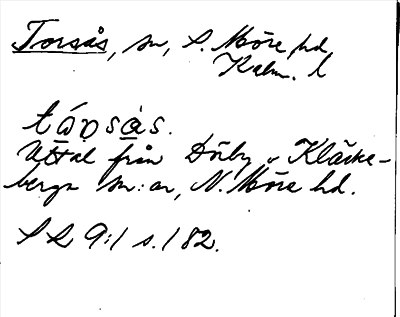 Torsås, sn, S. Möre hd,
Kalm. l
tápsàs.
Uttal från Dörby o Kläcke-
berga sn:ar, N. Möre hd.
SL 9:1 s. 182.